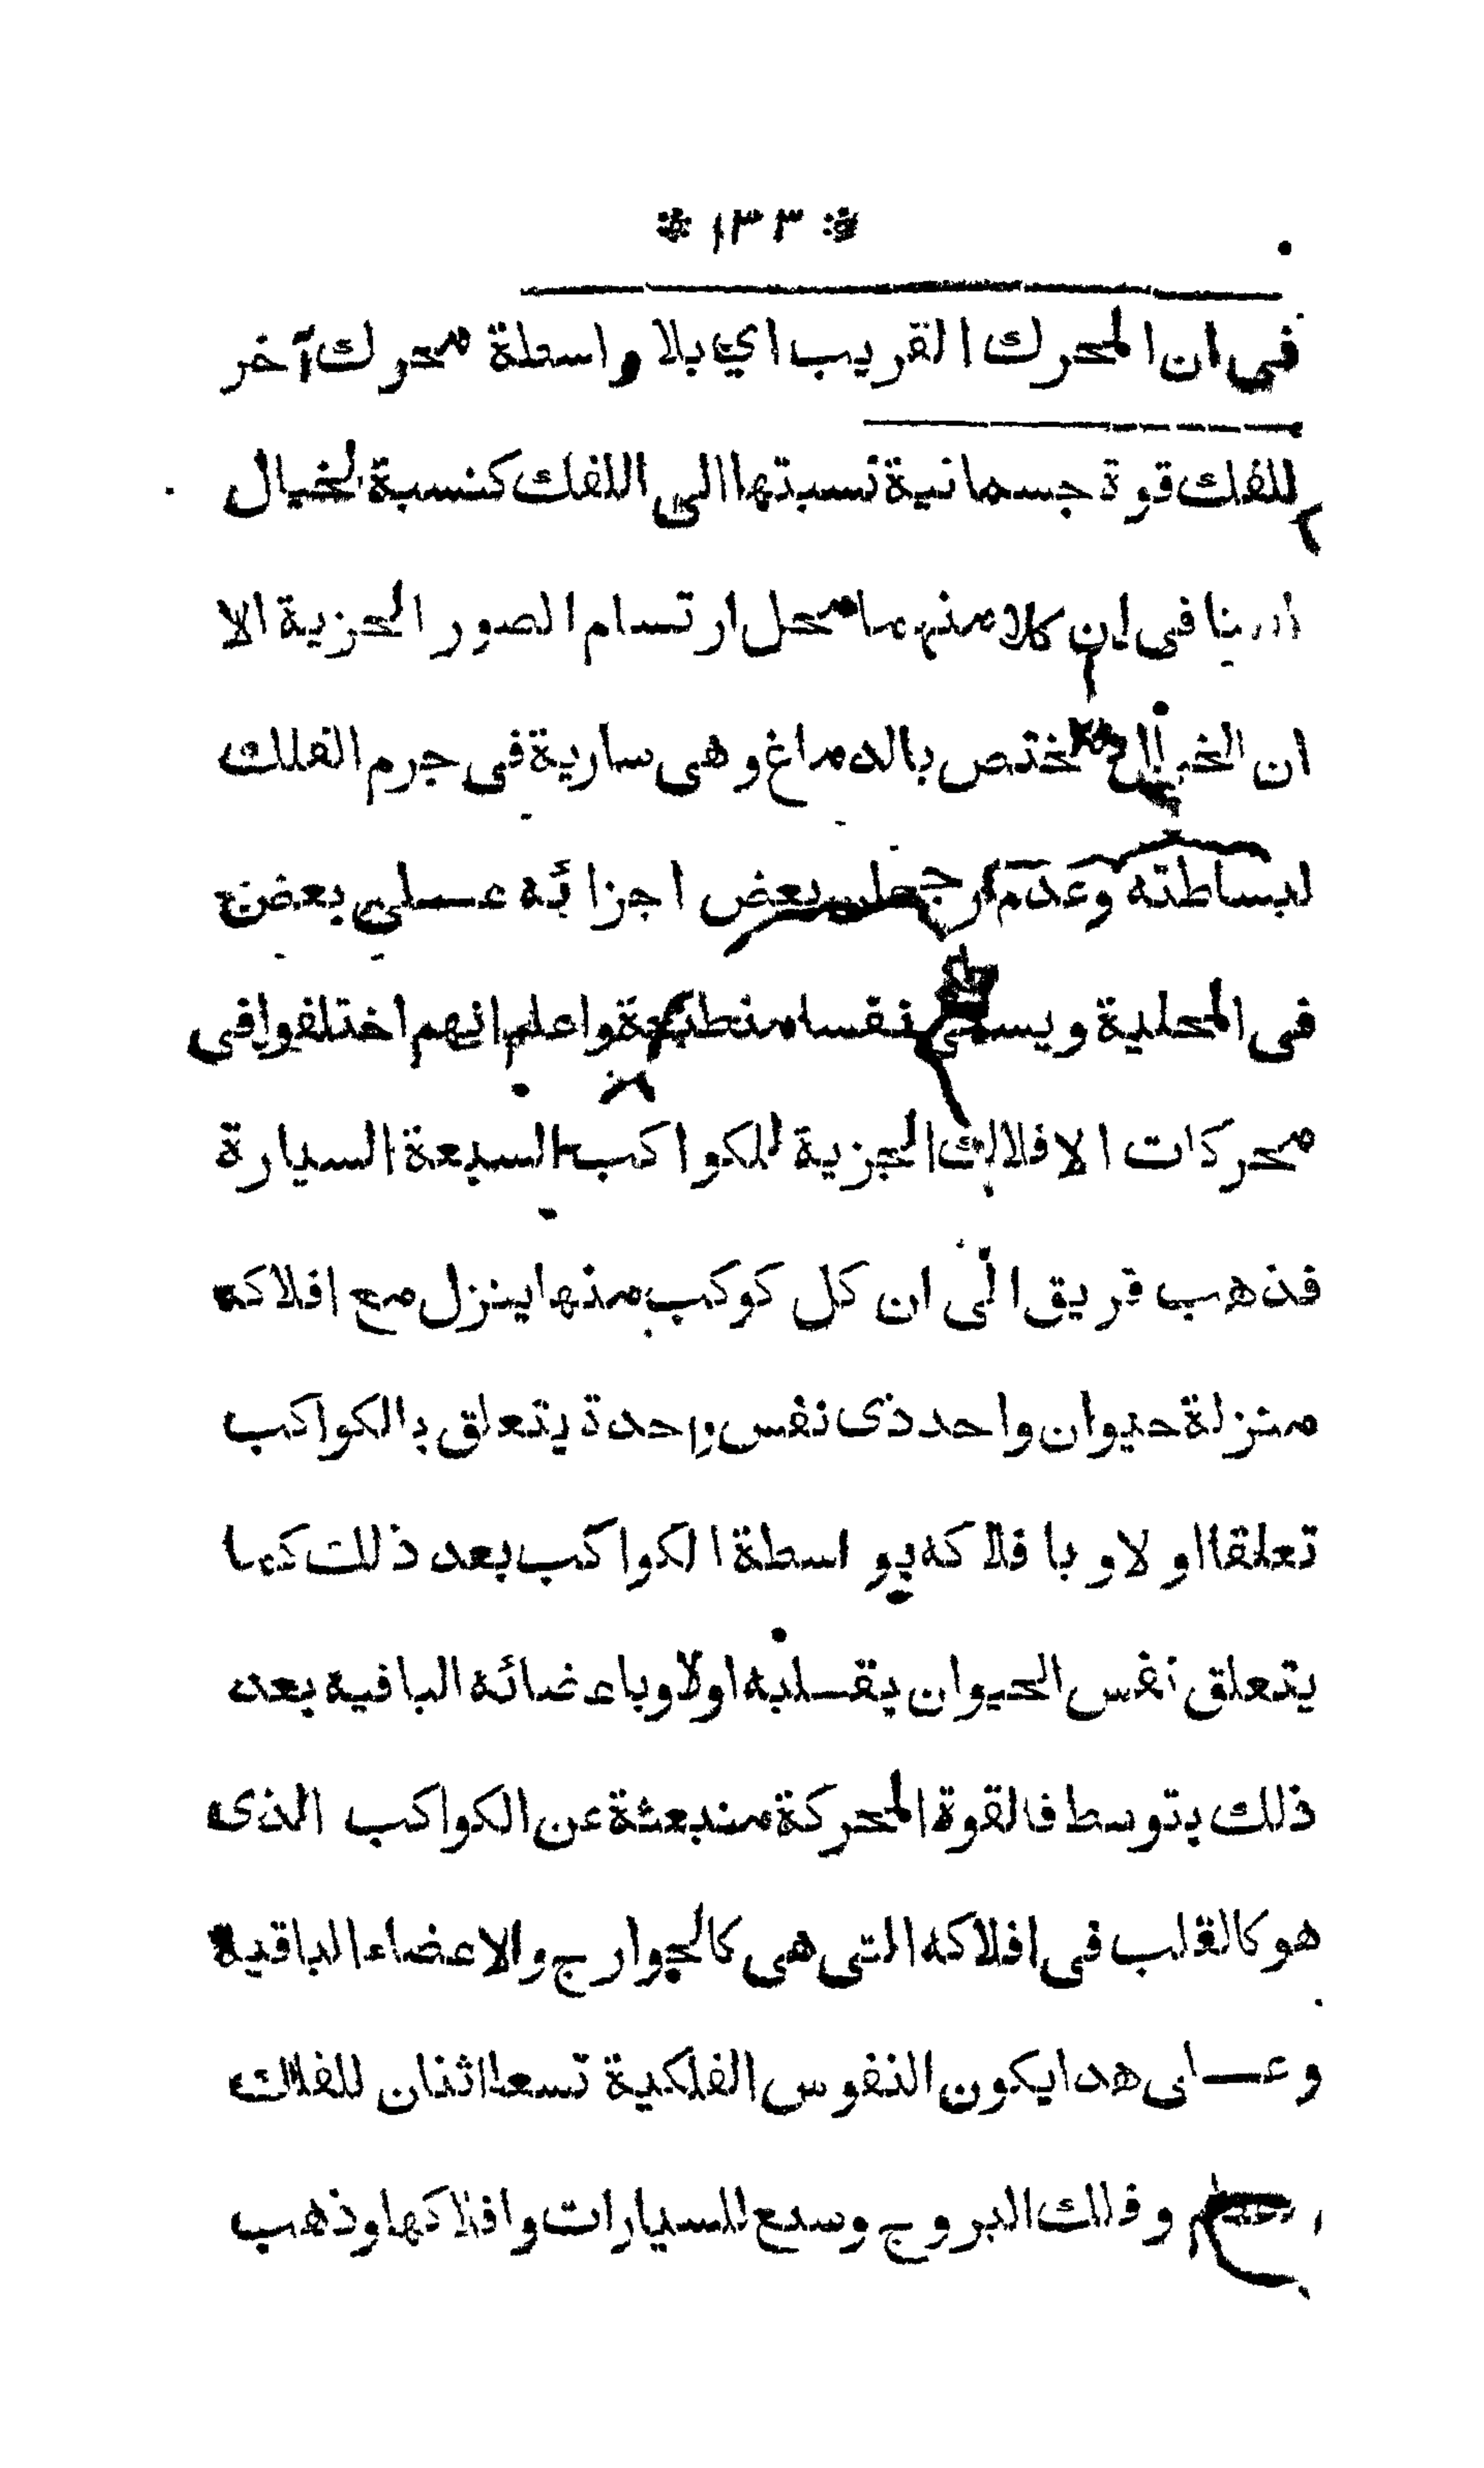 * ١٣٣ *
فى ان المحرك القريب اي بلا واسطة محرك آخر
للفك قوة جسمانية نسبتها الى اللفك كنسبة لخيال
ينا فى ان كلا منهما محل ارتسام الصور الحزية الا
ان الخيال مختص بالدماغ وهى سارية فى جرم الفلك
لبساطته وعدم بعض اجزائه عـــلي بعض
فى المحلية ويسمى نفسا منطبعة واعلم انهم اختلفوا فى
محركات الافلاك الجزية للكواكب السبعة السيارة
فذهب فريق الى ان كل كوكب منها ينزل مع افلاكه
منزلة حيوان واحد ذى نفس واحدة يتعلق بالكواكب
تعلقا اولا وبافلاكه بواسطة الكواكب بعد ذلك كما
يتعلق نفس الحيوان بقــلبه اولا وباعضائه البافية بعد
ذلك بتوسط فالقوة المحركة منبعثة عن الكواكب الذى
هو كالقلب فى افلاكه التى هى كالجوارح والاعضاء الباقية
وعــلى هدا يكون النفوس الفلكية تسعا اثنان للفلك
وفلك البروج وسبع للسيارات وافلاكها وذهب